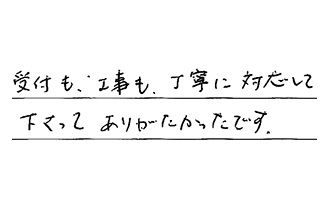 受付も、工事も、丁寧に対応して
下さって ありがたかったです。